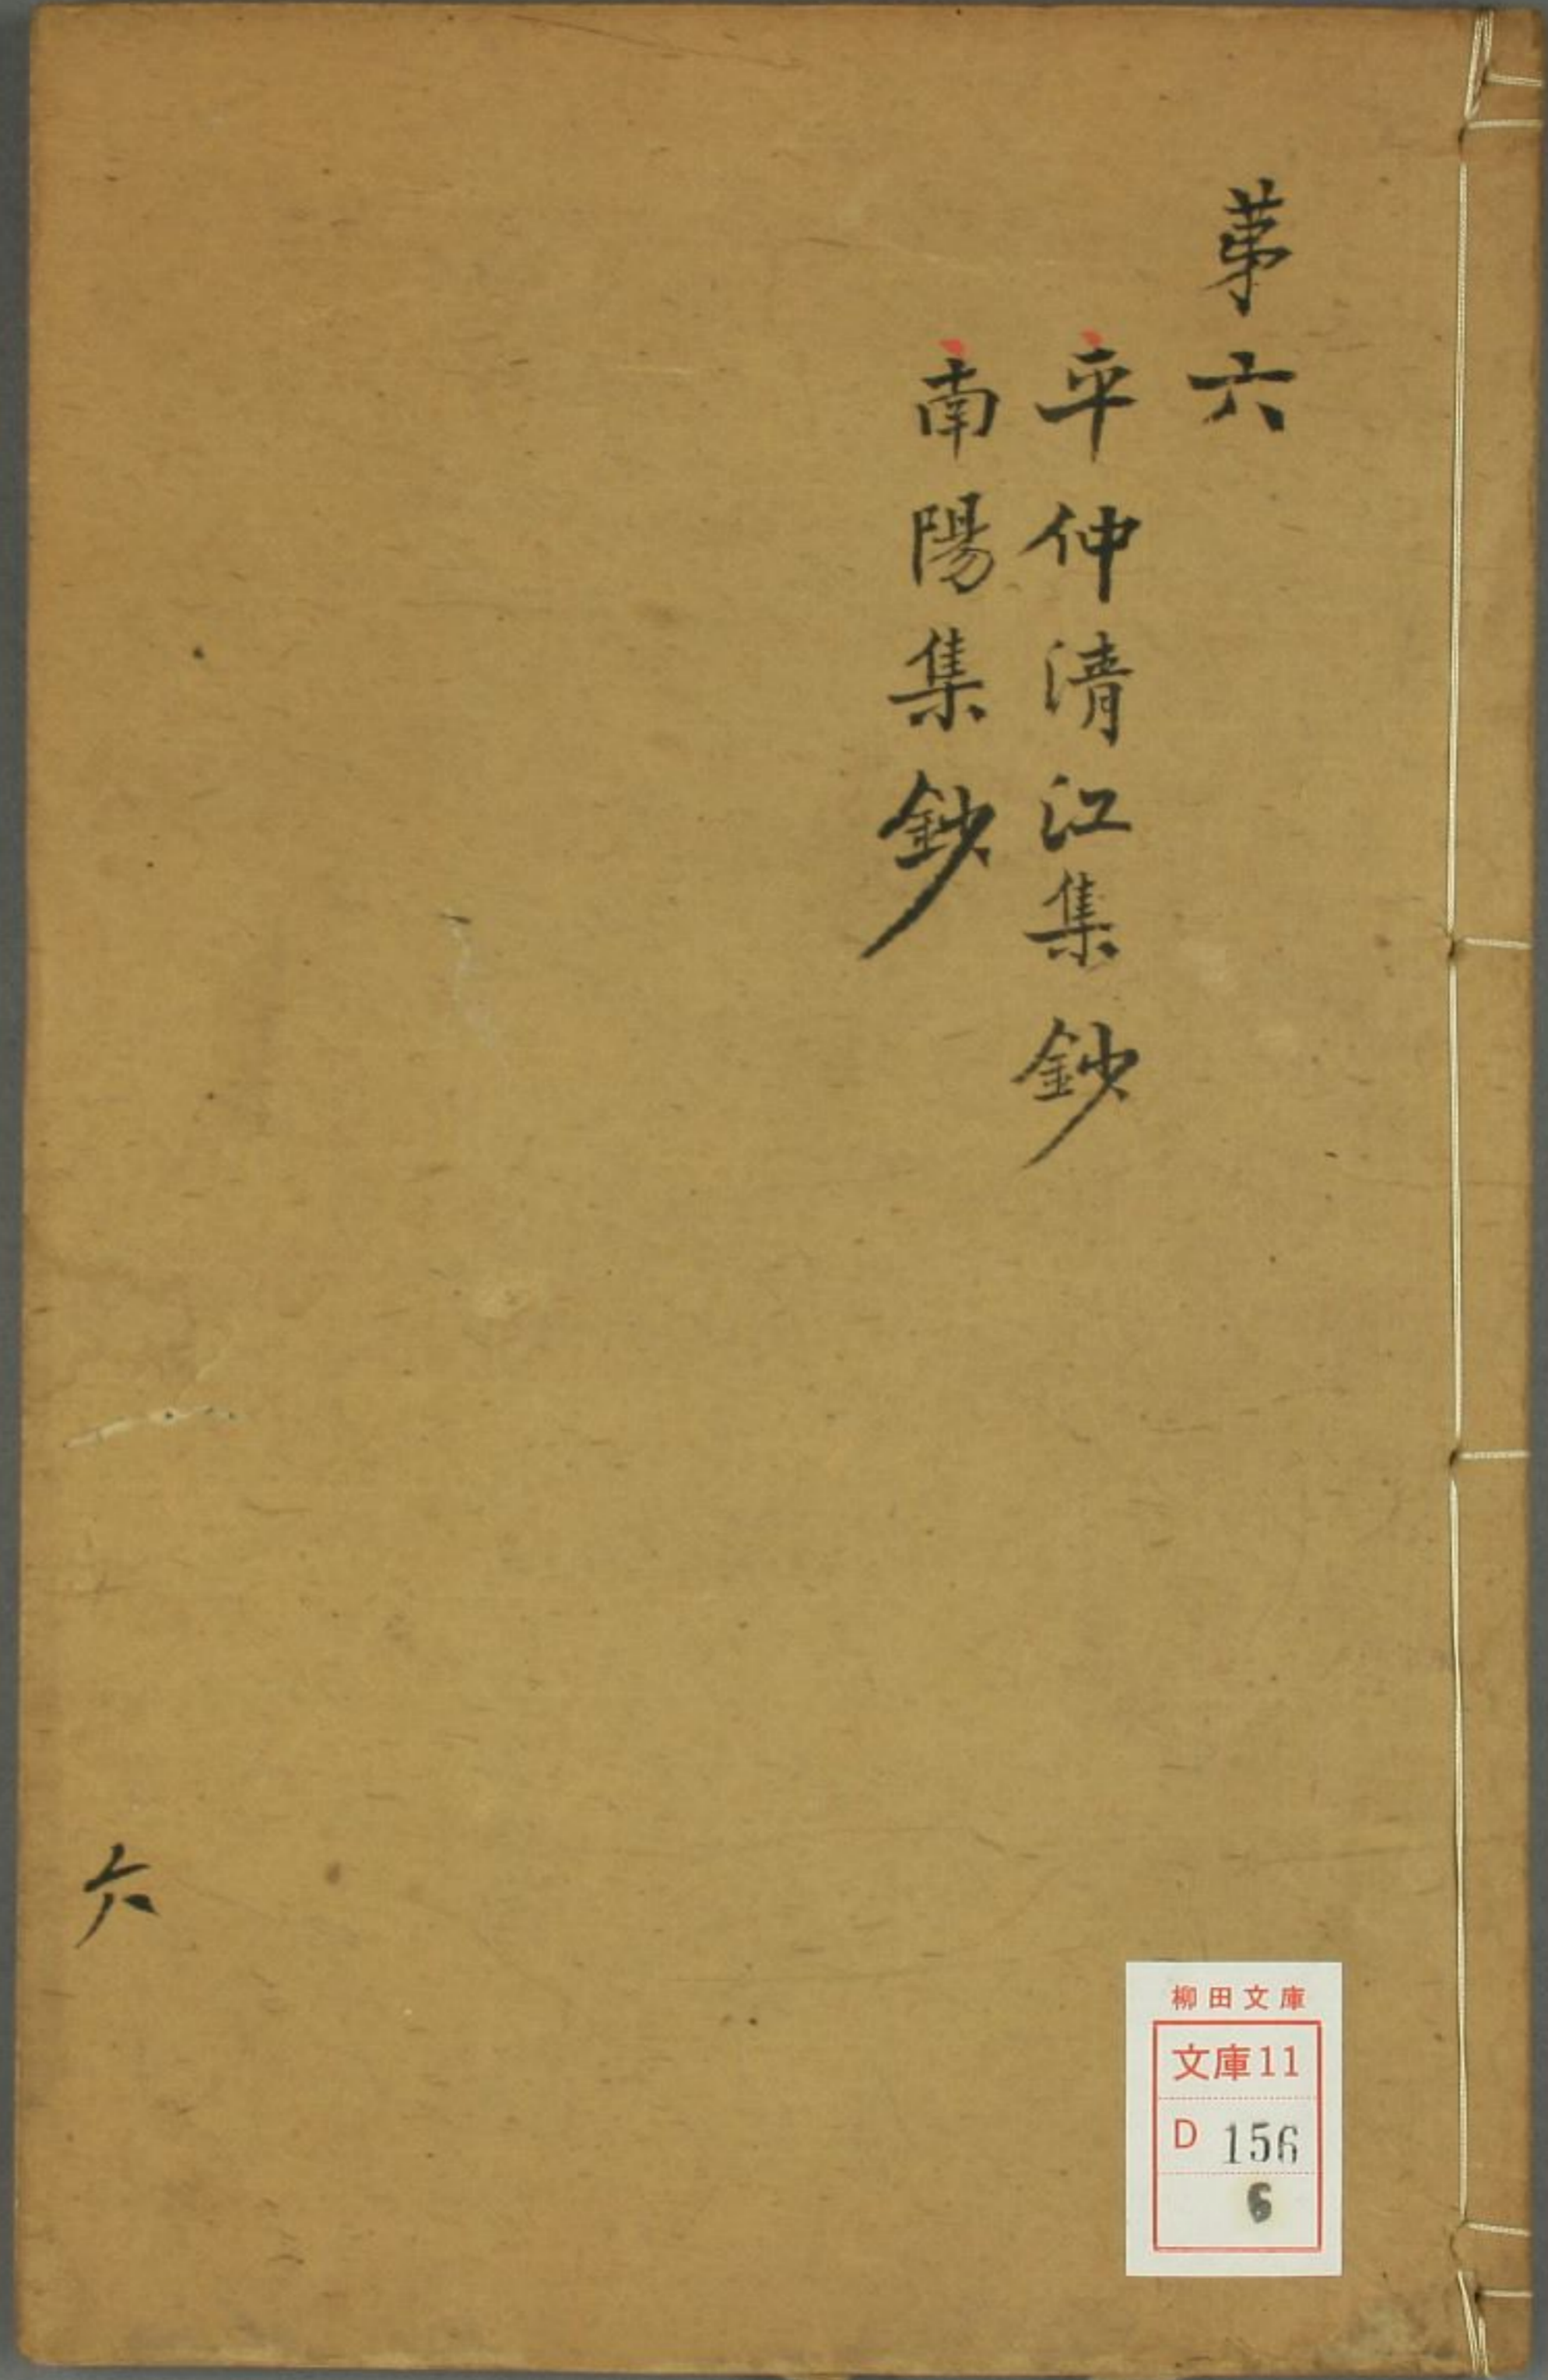 第六
平仲清江集鈔
南陽集鈔
六
柳田文庫
文庫11
D 156
6